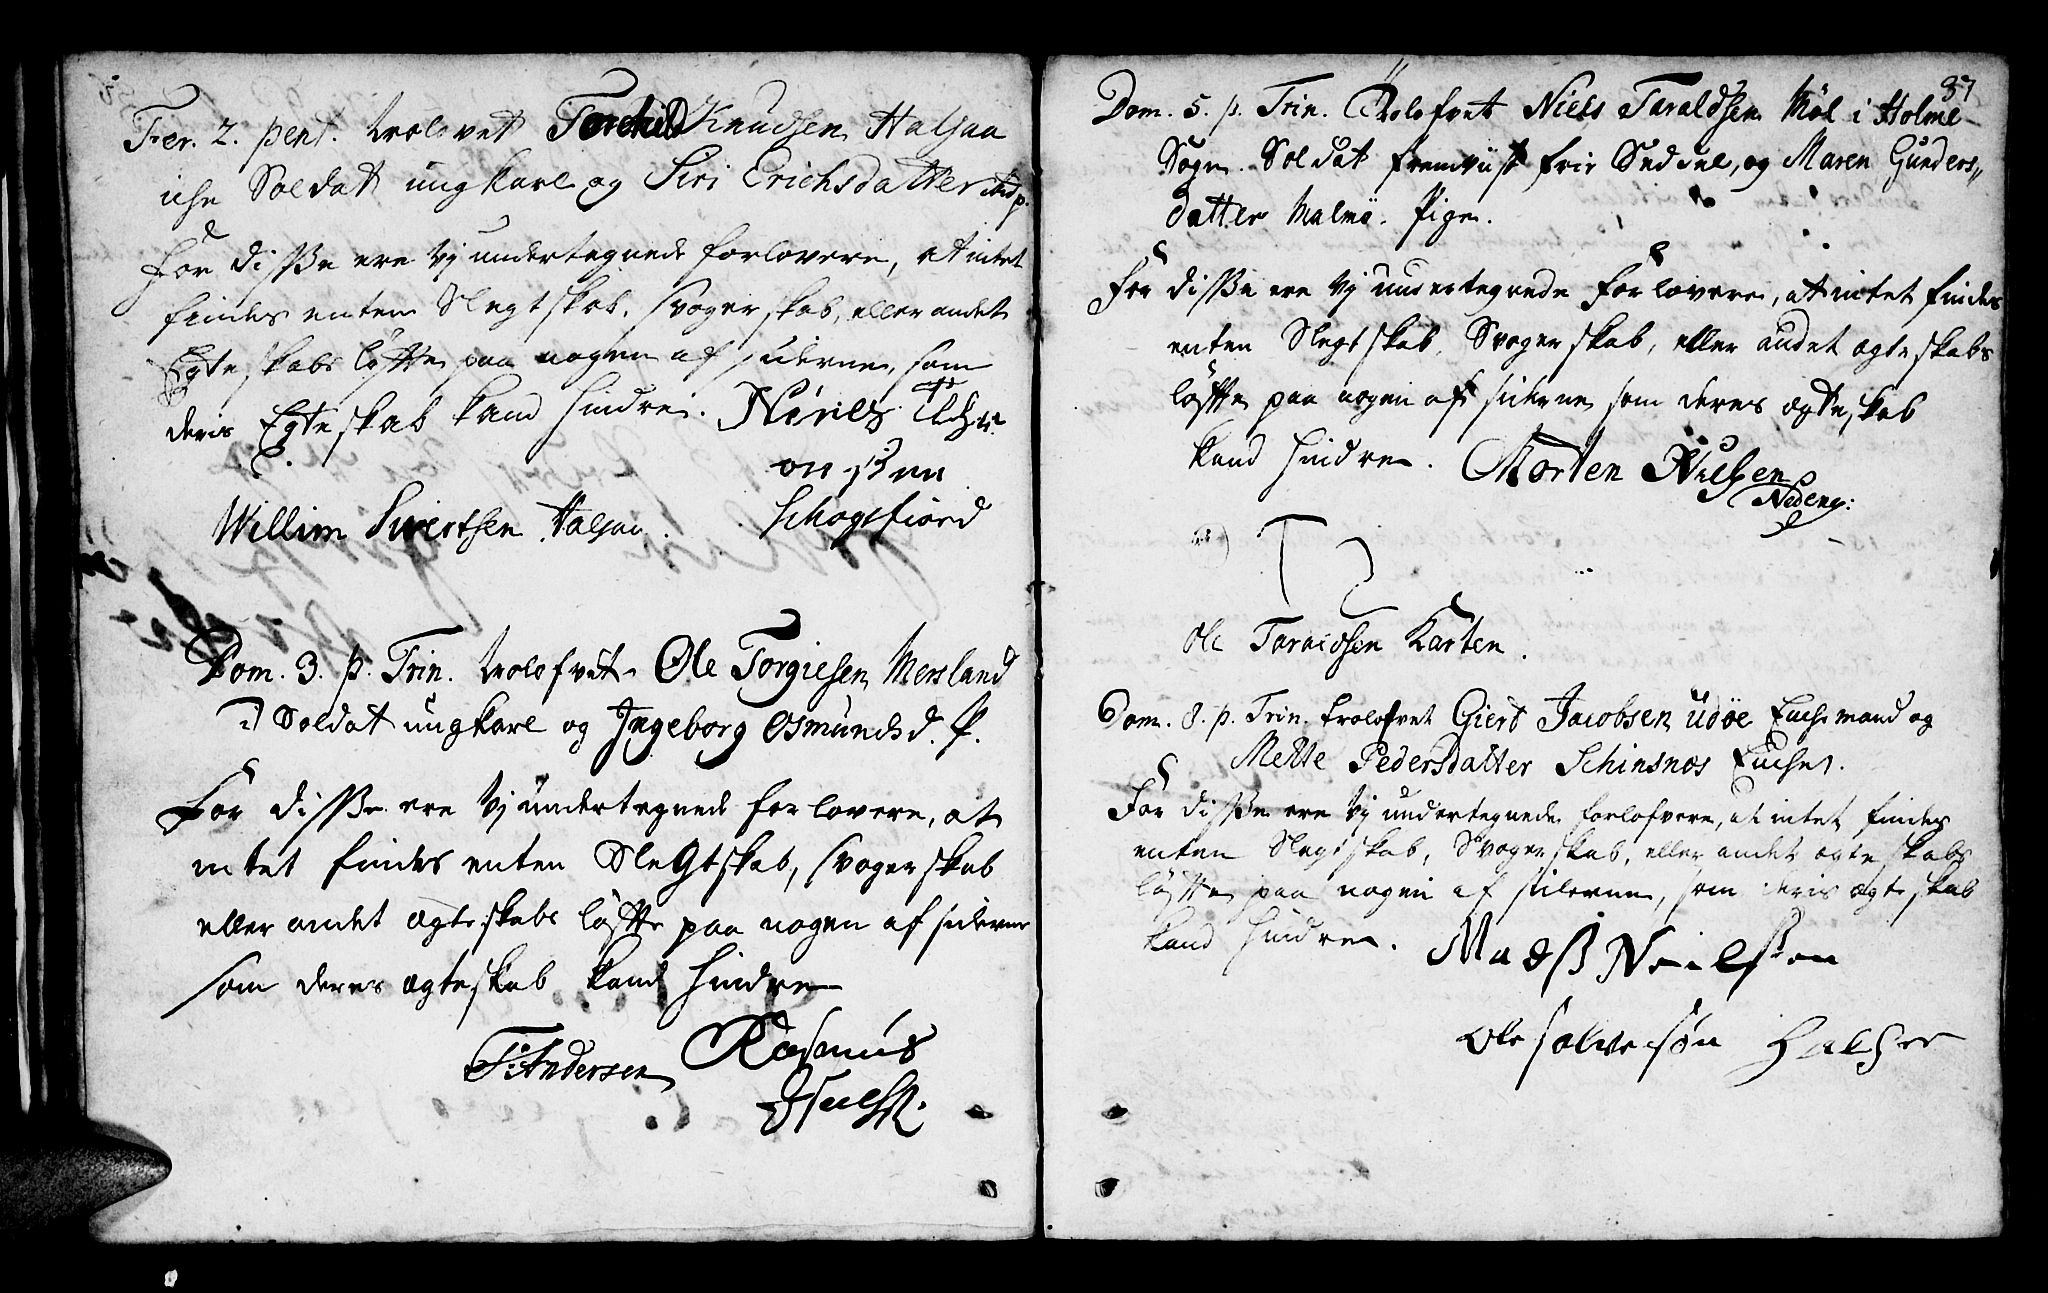 Fer. 2. pent. trolovet Torchild Knudsen Halsaa
iche Soldat ungkarl og Siri Erichsdatter ibid. p.
For disße ere Vj undertegnede forlovere, at intet
findes enten Slegtskab, svogerskab, eller andet
Egteskabs løffte paa nogen af siderne, som
deris Egteskab kand hindre.
onßen
Willim Sivertsen Halsaa. Schogsfiord
Dom. 3. p. Trin. trolofvet Ole Torgiesen Mersland
Soldat ungkarl og Ingeborg Osmundsd. P.
For disße ere Vj undertegnede forlovere, at
intet findes enten Slegtskab, svogerskab
eller andet ægteskabs løffte paa nogen af siderne
som deres ægteskab kand hindre
T: Andersen Rasmus
37
Dom. 5. p. Trin. Trolofvet Niels Taraldsen Møl i Holme
Sogn. Soldat fremviist frie Seddel, og Maren Gunders
datter Malmø. Pige.
For disße ere Vj undertegnede Forlovere, at intet findes
enten Slegtskab, Svogerskab, eller andet ægteskabs
løffte paa nogen af siderne som deres ægteskab
kand hindre. Morten Nielsen
Ole Taraldsen Karten.
Dom. 8. p. Trin. trolofvet Giert Jacobsen Udøe Enchemand og
Mette Pedersdatter Schinsnes Enche.
For disße ere Vj undertegnede forlofvere, at intet findes
enten Slegtskab, Svogerskab, eller andet ægteskabs
løffte paa nogen af siderne, som deris ægteskab
kand hindre. Madß Neilsßen
Ole Salvesøn